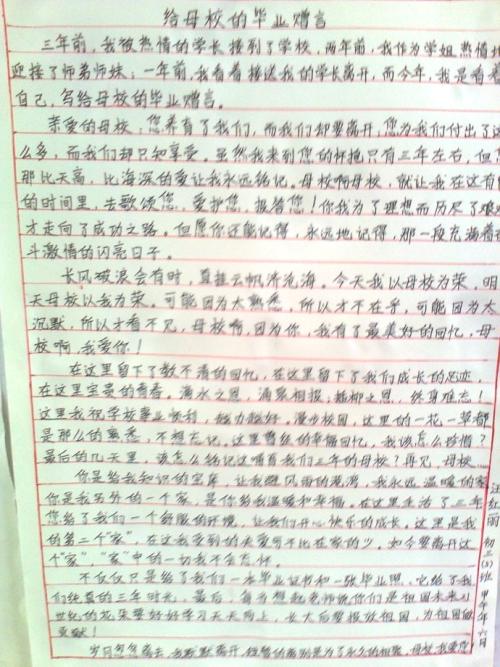 给母校的毕业赠言
三年前，我被热情的学长接到了学校，两年前，我作为学姐热情地
迎接了师弟师妹；一年前，我看着接送我的学长离开，而今年，我是看着
自己，写给母校的毕业赠言。
亲爱的母校，您养育了我们，而我们却要离开，您为我们付出了这
么多，而我们却只知享受。虽然我来到您的怀抱只有三年左右，但您
那比天高，比海深的爱让我永远铭记。母校啊母校，就让我在这有限
的时间里，去歌颂您，爱护您，报答您！你我为了理想而历尽了艰
才走向了成功之路。但愿你还能记得，永远地记得，那一段充满着奋
斗激情的闪亮日子。
长风破浪会有时，直挂云帆济沧海。今天我以母校为荣，明
天母校以我为荣。可能因为太熟悉，所以才不在乎，可能因为太
沉默，所以才看不见，母校啊，因为你，我有了最美好的回忆，母
校啊，我爱你！
在这里留下了数不清的回忆，在这里留下了我们成长的足迹，
在这里宝贵的青春。滴水之恩，涌泉相报；插柳之恩，终身难忘！
这里我祝学校事业顺利，越办越好。漫步校园，这里的一花一草都
是那么的熟悉，不想忘记，这里曾经的幸福回忆，我该怎么珍惜？
最后的几天里，该怎么铭记这哺育我们三年的母校？再见，母校……
你是给我知识的宝库，让我避风雨的港湾，我永远温暖的家
你是我另外的一个家，是你给我温暖和幸福。在这里生活了三年
您给了我们一个舒服的环境，让我们开心快乐的成长，这里是我
的第二个“家”，在这我受到的关爱可不比在家的少，如今要离开这
个“家”，“家”中的一切我不会忘怀。
不仅仅只是给了我们一本毕业证书和一张毕业照，它给了我
们纯真的三年时光，最后，每当想起老师说你们是祖国未来
世纪的花朵要好好学习天天向上，长大后要报效祖国，为祖国做
贡献！
岁月匆匆离去，我默默离开，短暂的离别是为了永久的相聚，母校我爱您
初三(5)班
甲午年六月